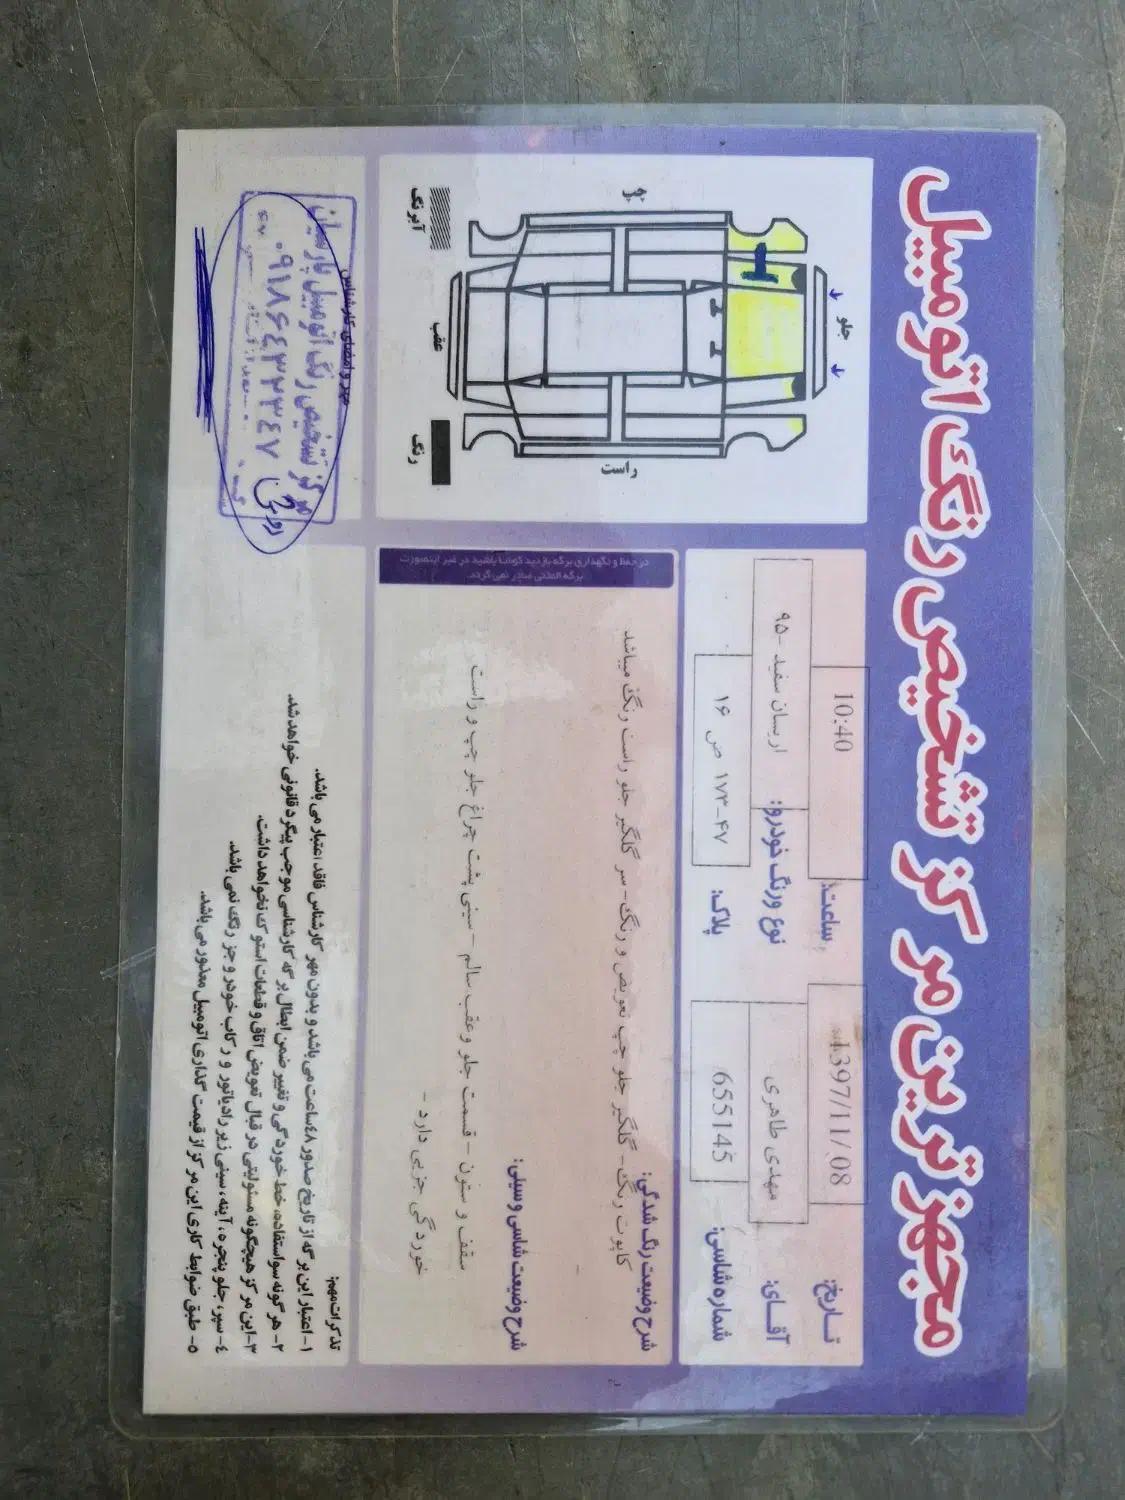 مجهزترین مرکز تشخیص رنگ اتومبیل
تاریخ: 1397/11/08
ساعت: 10:40
آقای: مهدی طاهری
نوع ورنگ خودرو: اریسان سفید -۹۵
شماره شاسی: 655145
پلاک: ۴۷-۱۷۳ ص ۱۶
شرح وضیعت رنگ شدگی:
کاپوت رنگ- گلگیر جلو چپ تعویض و رنگ- سر گلگیر جلو راست رنگ میباشد
شرح وضیعت شاسی و سیلی:
سقف و ستون - قسمت جلو و عقب سالم - سینی پشت چراغ جلو چپ و راست
خوردگی جزیی دارد -
در حفظ و نگهداری برگه بازدید کوشا باشید در غیر اینصورت
برگه المثنی صادر نمی گردد.
چپ
جلو
عقب
راست
آبرنگ
رنگ
مهر و امضای کارشناس
مرکز تشخیص رنگ اتومبیل پارسیان
۰۹۱۸۶۴۳۲۳۴۷
تذکرات مهم:
۱- اعتبار این برگه از تاریخ صدور ۴۸ساعت می باشد و بدون مهر کارشناس فاقد اعتبار می باشد.
۲- هرگونه سواستفاده، خط خوردگی و تغییر ضمن ابطال برگه کارشناسی موجب پیگرد قانونی خواهد شد.
۳-این مرکز هیچگونه مسئولیتی در قبال تعویض اتاق و قطعات استوک نخواهد داشت.
۴- سپر، جلو پنجره، آینه، سینی زیر رادیاتور و رکاب خودرو جز رنگ نمی باشد.
۵- طبق ضوابط کاری این مرکز از قیمت گذاری اتومبیل معذور می باشد.